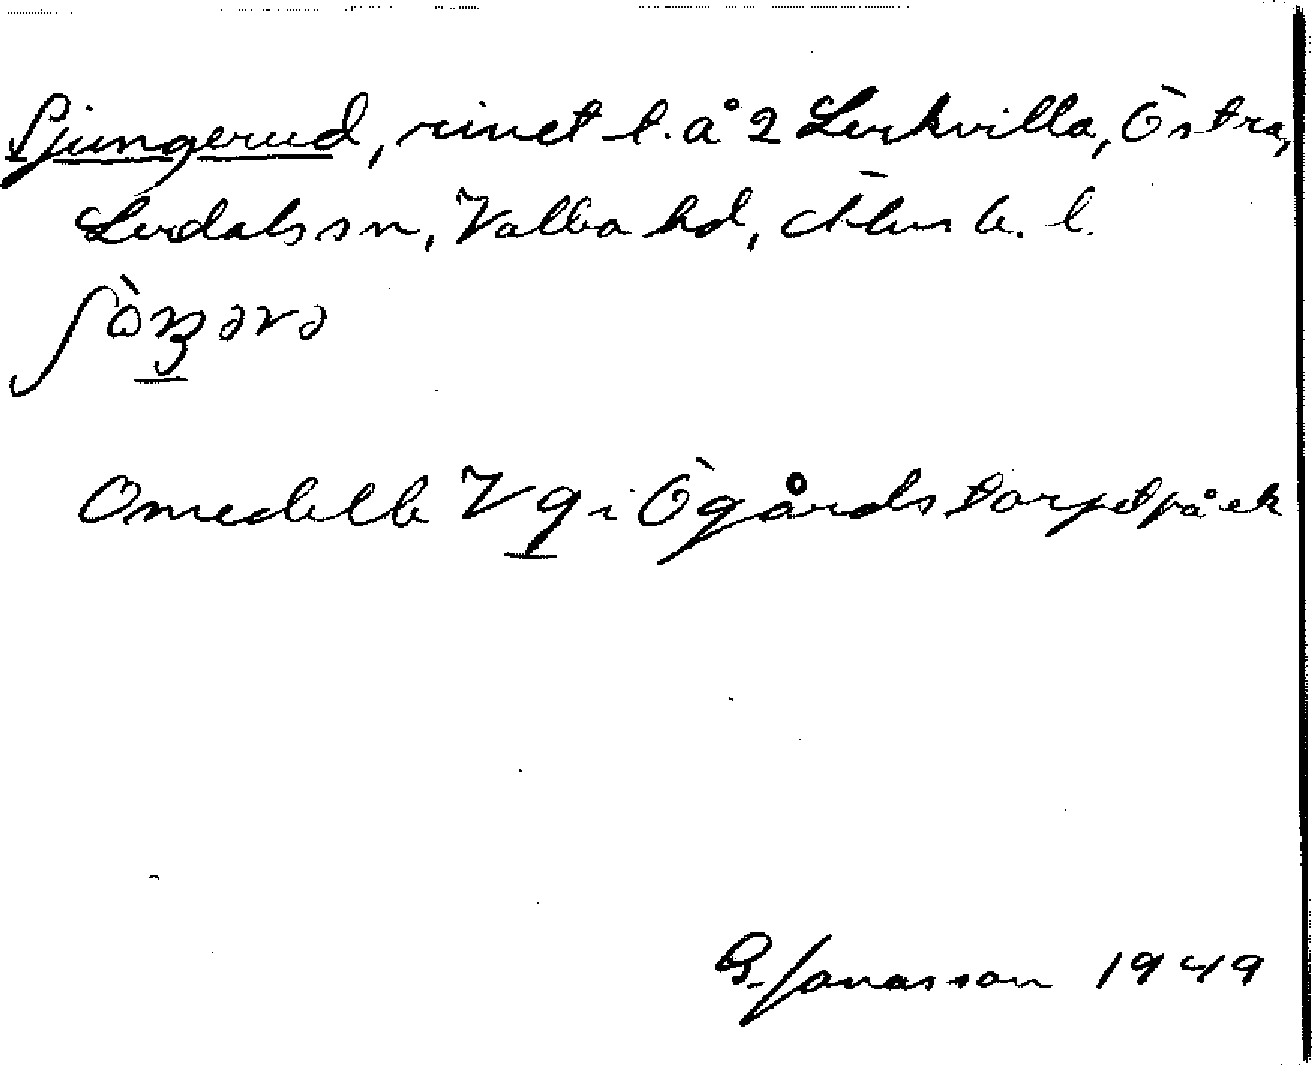 Ljungerud, rivet l. å 2 Lerkvilla, Östra,
Lerdals sn, Valbo hd, Älvsb. l.
ʃòŋərə
Omedelb V g i Ögårdstorpet på ek
G. Jonasson 1949